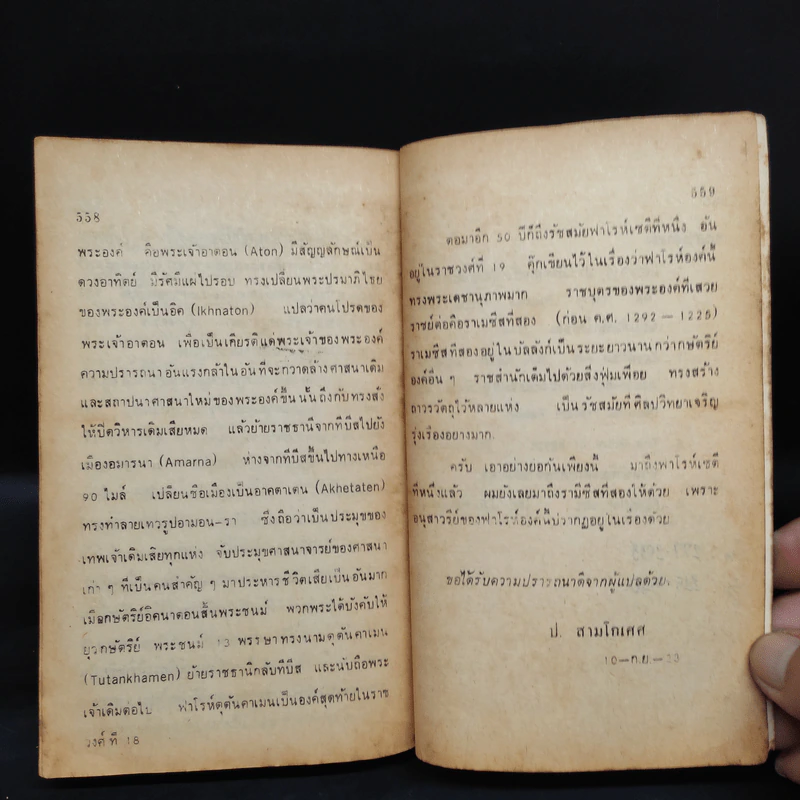 558
พระองค์ คือพระเจ้าอาตอน (Aton) มีสัญญลักษณ์เป็น
ดวงอาทิตย์ มีรัศมีแผ่ไปรอบ ทรงเปลี่ยนพระปรมาภิไธย
ของพระองค์เป็นอิค (Ikhnaton) แปลว่าคนโปรดของ
พระเจ้าอาตอน เพื่อเป็นเกียรติแด่พระเจ้าของพระองค์
ความปรารถนาอันแรงกล้าในอันที่จะกวาดล้างศาสนาเดิม
และสถาปนาศาสนาใหม่ของพระองค์ขึ้นนั้นถึงกับทรงสั่ง
ให้ปิดวิหารเดิมเสียหมด แล้วย้ายราชธานีจากทีบีสไปยัง
เมืองอมารนา (Amarna) ห่างจากทีบีสขึ้นไปทางเหนือ
90 ไมล์ เปลี่ยนชื่อเมืองเป็นอาคตาเตน (Akhetaten)
ทรงทำลายเทวรูปอามอน-รา ซึ่งถือว่าเป็นประมุขของ
เทพเจ้าเดิมเสียทุกแห่ง จับประมุขศาสนาจารย์ของศาสนา
เก่า ๆ ที่เป็นคนสำคัญ ๆ มาประหารชีวิตเสียเป็นอันมาก
เมื่อกษัตริย์อิคนาตอนสิ้นพระชนม์ พวกพระได้บังคับให้
ยุวกษัตริย์ พระชนม์ 13 พรรษาทรงนามตุตันคาเมน
(Tutankhamen) ย้ายราชธานีกลับทีบีส และนับถือพระ
เจ้าเดิมต่อไป ฟาโรห์ตุตันคาเมนเป็นองค์สุดท้ายในราช
วงศ์ที่ 18
559
ต่อมาอีก 50 ปีก็ถึงรัชสมัยฟาโรห์เซติที่หนึ่ง อัน
อยู่ในราชวงศ์ที่ 19 คุ๊กเขียนไว้ในเรื่องว่าฟาโรห์องค์นี้
ทรงพระเดชานุภาพมาก ราชบุตรของพระองค์ที่เสวย
ราชย์ต่อคือราเมซีสที่สอง (ก่อน ค.ศ. 1292 — 1225)
ราเมซีสที่สองอยู่ในบัลลังก์เป็นระยะยาวนานกว่ากษัตริย์
องค์อื่น ๆ ราชสำนักเต็มไปด้วยสิ่งฟุ่มเฟือย ทรงสร้าง
ถาวรวัตถุไว้หลายแห่ง เป็นรัชสมัยที่ศิลปวิทยาเจริญ
รุ่งเรืองอย่างมาก.
ครับ เอาอย่างย่อกันเพียงนี้ มาถึงฟาโรห์เซติ
ที่หนึ่งแล้ว ผมยังเลยมาถึงรามิซีสที่สองให้ด้วย เพราะ
อนุสาวรีย์ของฟาโรห์องค์นี้ปรากฏอยู่ในเรื่องด้วย
ขอได้รับความปรารถนาดีจากผู้แปลด้วย.
ป. สามโกเศศ
10—ก.ย.—23